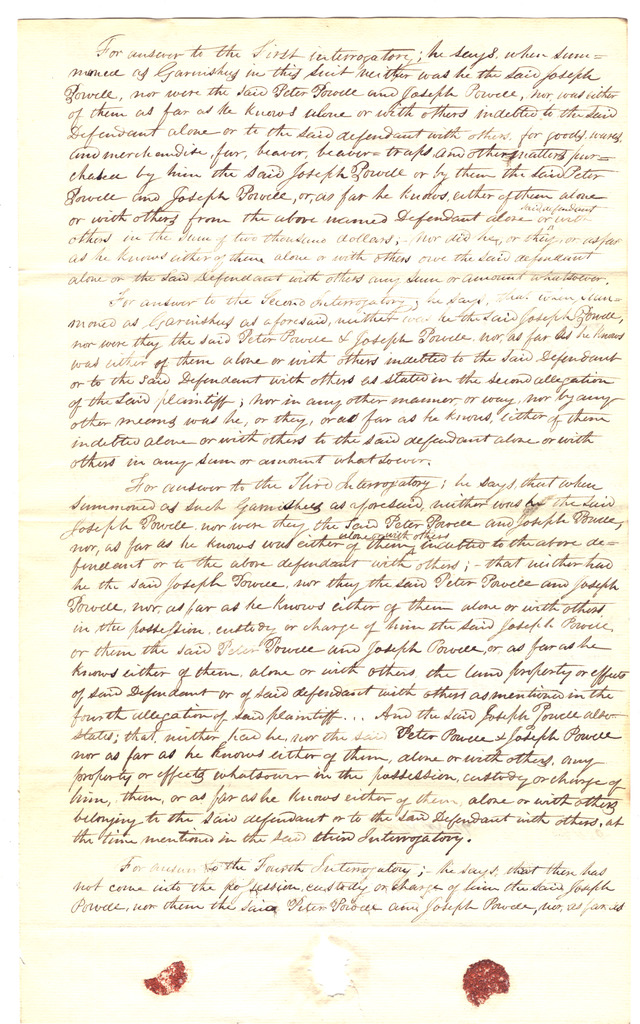 For answer to the First interrogatory; he says, when sum=
moned as Garnishes in this suit neither was he the said Joseph
Powell, nor were the said Peter Powell and Joseph Powell, nor, was either
of them as far as he knows alone or with others indebted to the said
Defendant alone or to the said defendant with others, for goods, wares,
and merchandise, fur, beaver, beaver=traps and other matters pur=
chased by him the said Joseph Powell or by them the said Peter
Powell and Joseph Powell, or, as far he knows, either of them alone
or with others from the above named Defendant alone or said defendant with
others in the sum of two thousand dollars; - nor did he, or they, or as far
as he knows either of them alone or with others owe the said defendant
alone or the said Defendant with others any sum or amount whatsoever.
For answer to the Second Interrogatory; he says, that when sum=
moned as Garnishes as aforesaid, neither was he the said Joseph Powell,
nor were they the said Peter Powell & Joseph Powell, nor, as far as he knows
was either of them alone or with others indebted to the said Defendant
or to the said Defendant with others as stated in the second allegation
of the said plaintiff; nor in any other manner, or way, nor by any
other means was he, or they, or as far as he knows, either of them
indebted alone or with others to the said defendant alone or with
others in any sum or amount whatsoever.
For answer to the Third Interrogatory; he says, that when
summoned as such Garnishes as aforesaid, neither was he the said
Joseph Powell, nor were they the said Peter Powell and Joseph Powell,
nor, as far as he knows was either of them alone or with others indebted to the above de=
fendant or to the above defendant with others; - that neither had
he the said Joseph Powell, nor they the said Peter Powell and Joseph
Powell, nor, as far as he knows either of them alone or with others
in the possession, custody or charge of him the said Joseph Powell
or them the said Peter Powell and Joseph Powell, or as far as he
knows either of them, alone or with others, the land property or effects
of said Defendant or of said defendant with others as mentioned in the
fourth allegation of said plaintiff... And the said Joseph Powell also
states; that, neither had he, nor the said Peter Powell & Joseph Powell
nor as far as he knows either of them, alone or with others, any
property or effects whatsoever in the possession, custody or charge of
him, them, or as far as he knows either of them, alone or with others
belonging to the said defendant or to the said Defendant with others, at
the time mentioned in the said third Interrogatory.
For answer to the Fourth Interrogatory; - he says, that there has
not come into the possession, custody, or charge of him the said Joseph
Powell, nor them the said Peter Powell and Joseph Powell, nor, as far as